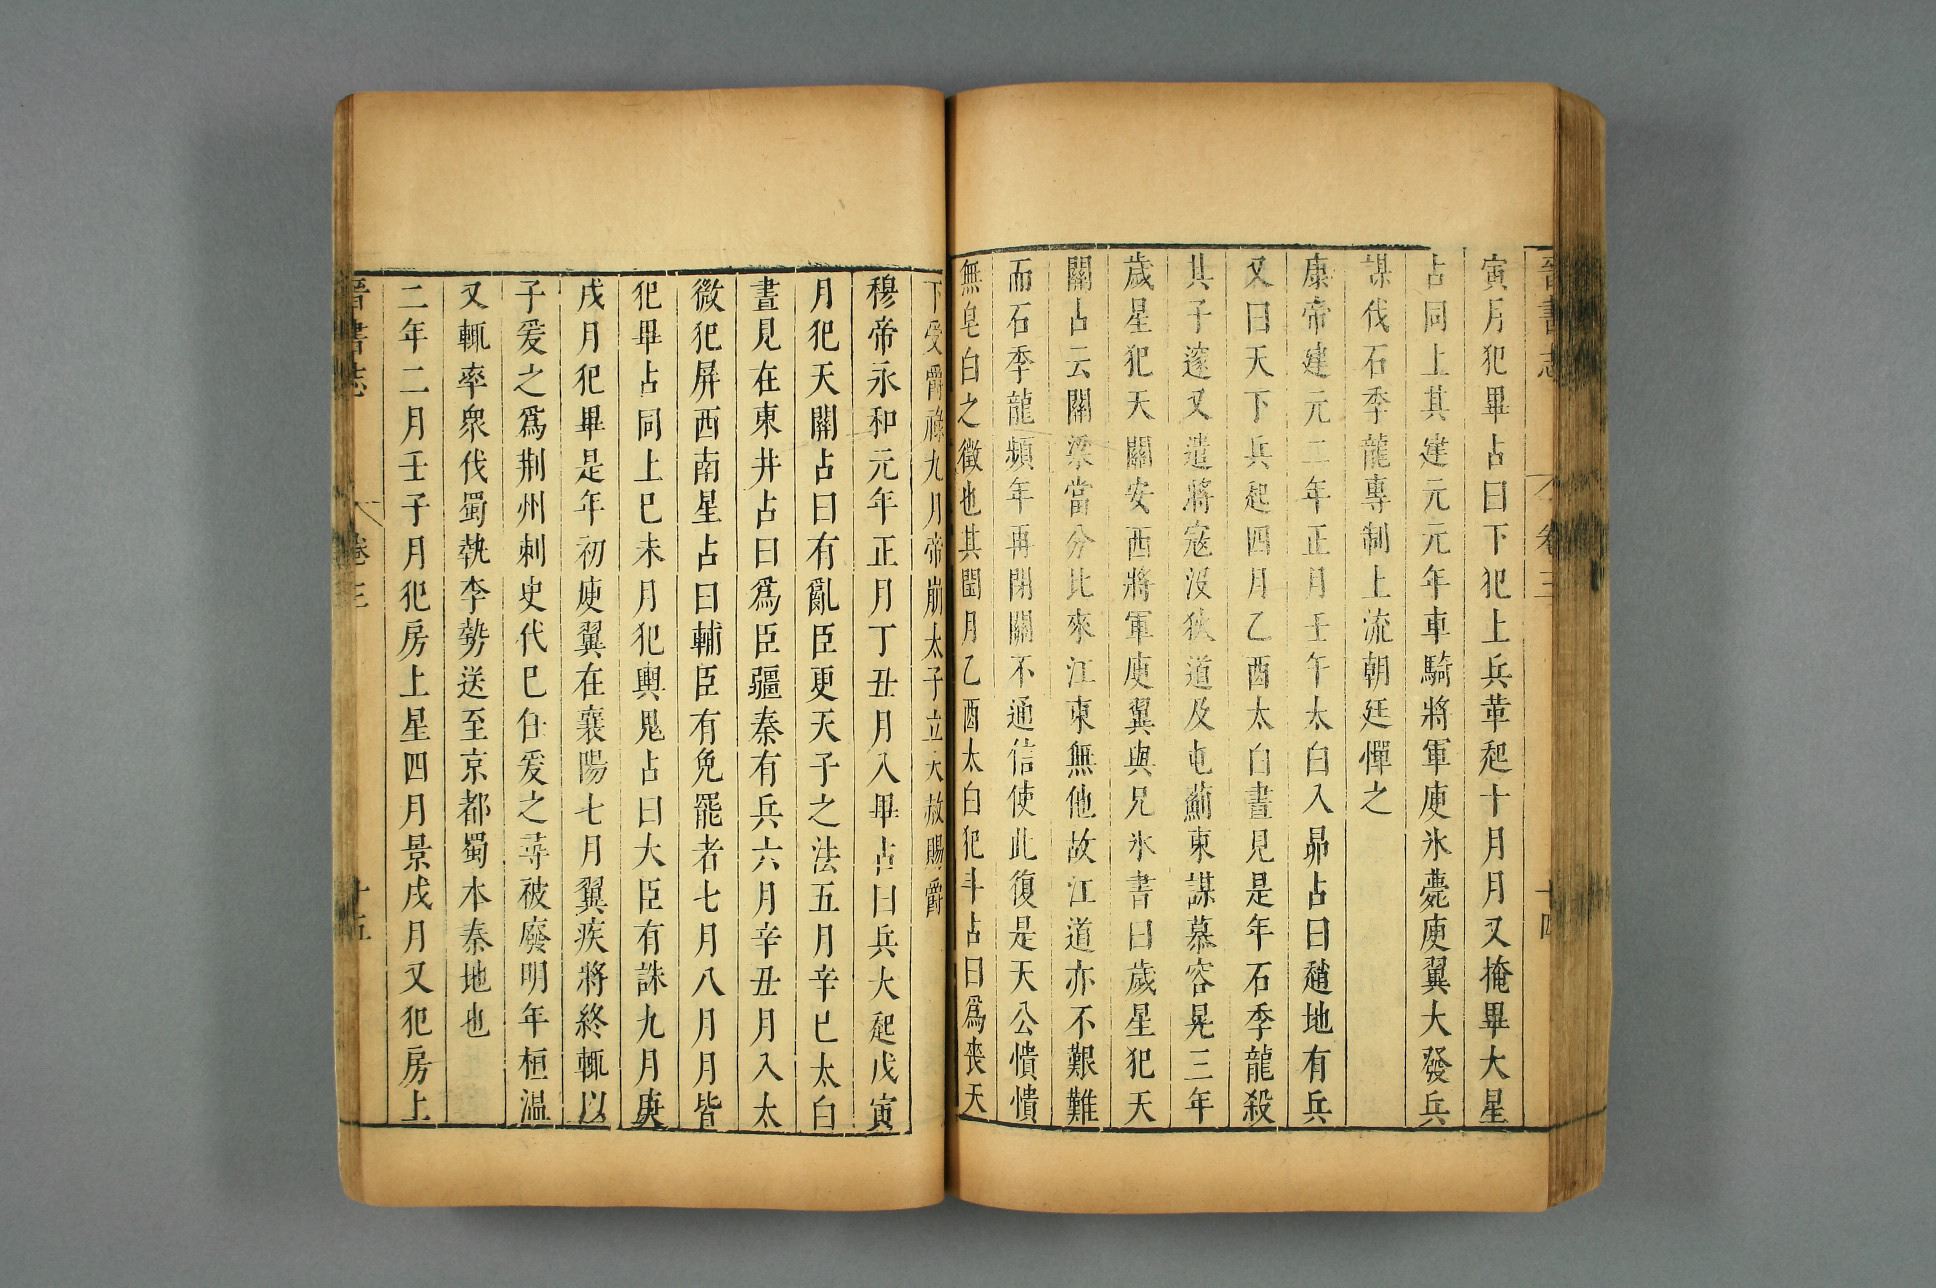 晉書志 卷三 十四
寅月犯畢占曰下犯上兵革起十月月又掩畢大星
占同上其建元元年車騎將軍庾氷薨庾翼大發兵
謀伐石季龍專制上流朝廷憚之
康帝建元二年正月壬午太白入昴占曰趙地有兵
又曰天下兵起四月乙酉太白晝見是年石季龍殺
其子邃又遣將寇沒狄道及屯薊東謀慕容晃三年
歲星犯天關安西將軍庾翼與兄氷書曰歲星犯天
關占云關梁當分比來江東無他故江道亦不艱難
而石季龍頻年再閉關不通信使此復是天公憒憒
無皂白之徵也其閏月乙酉太白犯斗占曰爲喪天
下受爵祿九月帝崩太子立大赦賜爵
穆帝永和元年正月丁丑月入畢占曰兵大起戊寅
月犯天關占曰有亂臣更天子之法五月辛巳太白
晝見在東井占曰爲臣疆秦有兵六月辛丑月入太
微犯屏西南星占曰輔臣有免罷者七月八月月皆
犯畢占同上巳未月犯輿鬼占曰大臣有誅九月庚
戌月犯畢是年初庾翼在襄陽七月翼疾將終輒以
子爰之爲荆州刺史代巳任爰之尋被廢明年桓溫
又輒率衆伐蜀執李勢送至京都蜀本秦地也
二年二月壬子月犯房上星四月景戌月又犯房上
晉書志 卷三 十五